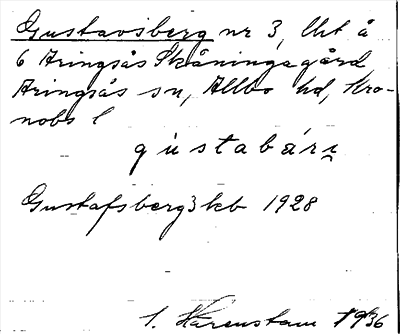 Gustavsberg nr 3, lht å
6 Aringsås Skåningagård
Aringsås sn, Allbo hd, Kro-
nobs l
gùstabárı
Gustafsberg 3 kb 1928
1936